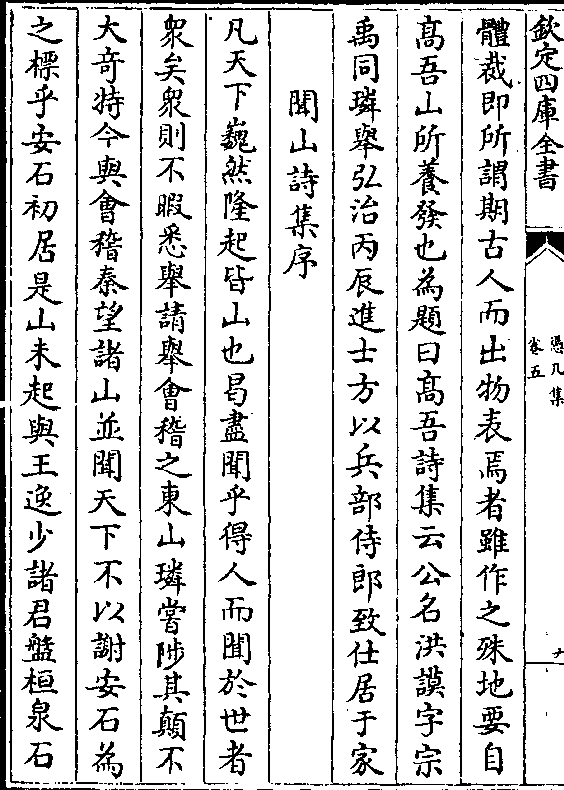 欽定四庫全書
憑几集
卷五
體裁即所謂期古人而出物表焉者雖作之殊地要自
髙吾山所養發也為題曰髙吾詩集云公名洪謨字宗
禹同璘舉弘治丙辰進士方以兵部侍郎致仕居于家
聞山詩集序
凡天下巍然隆起皆山也曷盡聞乎得人而聞於世者
衆矣衆則不暇悉舉請舉會稽之東山璘嘗陟其顛不
大竒特今與會稽秦望諸山並聞天下不以謝安石為
之標乎安石初居是山未起與王逸少諸君盤桓泉石